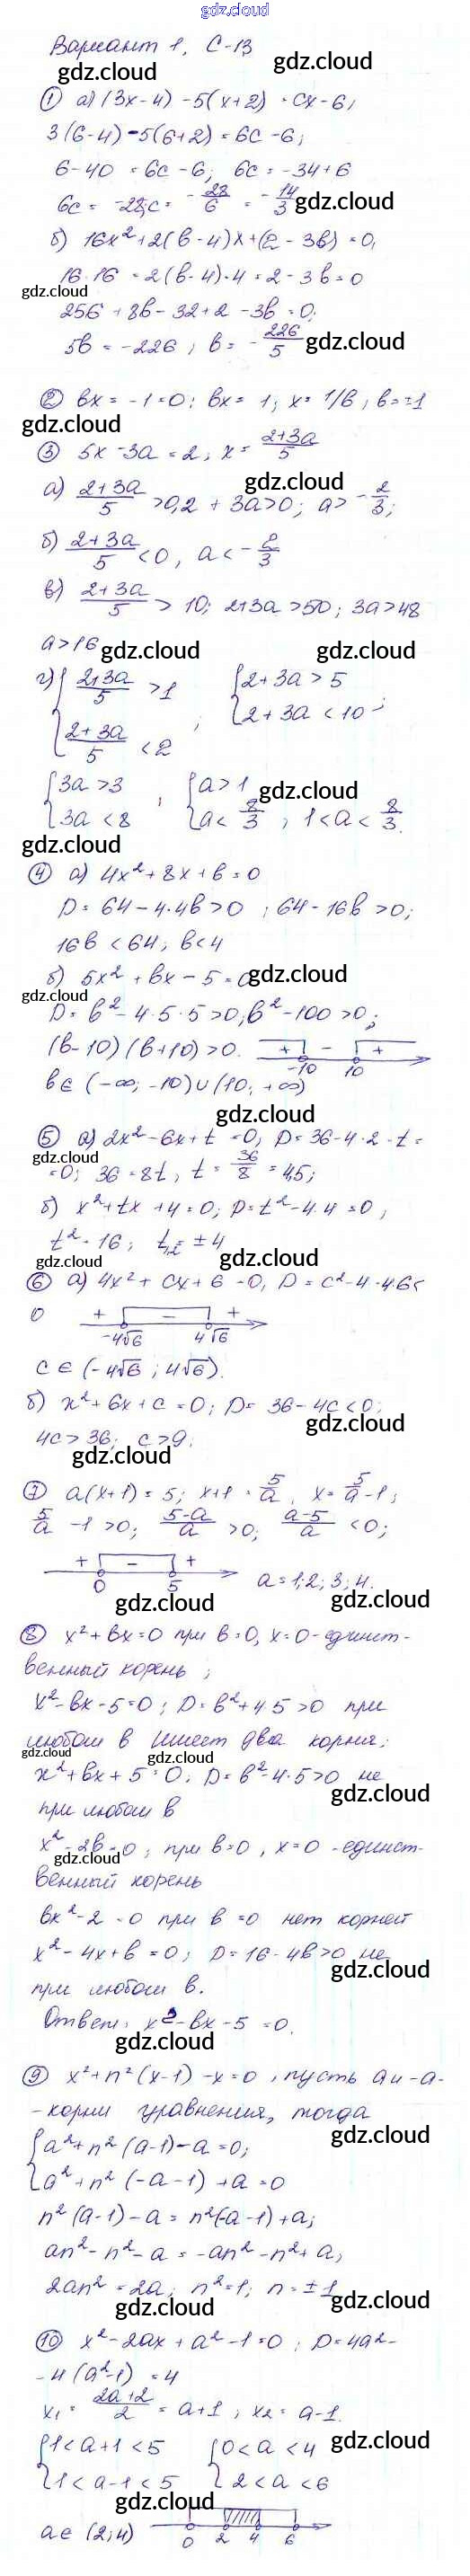 gdz.cloud
Вариант 1, С-13
gdz.cloud gdz.cloud
① а) (3x-4) -5(x+2) = cx-6,
3(6-4) -5(6+2) = 6c -6;
6-40 = 6c -6; 6c = -34+6
6c = -28; c = -28/6 = -14/3 gdz.cloud
б) 16x²+2(b-4)x+(2-3b)=0,
16·16 = 2(b-4)·4 = 2-3b=0
gdz.cloud
256 + 8b-32+2 -3b =0;
5b = -226; b = -226/5 gdz.cloud
② bx = -1=0; bx = 1; x = 1/b; b = ±1
gdz.cloud
③ 5x-3a = 2, x = (2+3a)/5
gdz.cloud
а) (2+3a)/5 >0,2 + 3a>0; a> -2/3;
б) (2+3a)/5 <0, a < -2/3
в) (2+3a)/5 > 10; 2+3a >50; 3a>48
a>16 gdz.cloud gdz.cloud
г) { (2+3a)/5 >1 ; { 2+3a > 5
{ (2+3a)/5 <2 { 2+3a <10 ;
{ 3a >3 , { a>1 gdz.cloud
{ 3a <8 { a< 8/3 , 1<a< 8/3.
gdz.cloud
④ а) 4x²+8x+b=0
D = 64-4·4b>0 ; 64-16b >0;
16b <64; b<4
б) 5x² +bx-5=0 gdz.cloud
gdz.cloud
D = b²-4·5·5>0, b²-100>0;
(b-10)(b+10)>0. + - +
-10 10
b∈(-∞; -10)∪(10; +∞)
gdz.cloud
⑤ а) 2x²-6x+t =0, D=36-4·2·t =
gdz.cloud
=0; 36=8t, t = 36/8 = 4,5;
б) x²+tx+4=0; D=t²-4·4=0;
t²=16; t₁,₂= ±4
gdz.cloud gdz.cloud
⑥ а) 4x²+cx+6=0, D=c²-4·4·6<
0 + - +
-4√6 4√6
c∈(-4√6; 4√6).
б) x²+6x+c=0; D=36-4c<0;
gdz.cloud
4c>36; c>9;
gdz.cloud
⑦ a(x+1)=5; x+1=5/a, x=5/a-1;
5/a -1>0; (5-a)/a >0; (a-5)/a <0;
+ - +
0 5 a=1;2;3;4.
gdz.cloud gdz.cloud
⑧ x²+bx=0 при b=0, x=0-единст-
венный корень;
x²-bx-5=0; D=b²+4·5>0 при
любом b имеет два корня;
gdz.cloud gdz.cloud
x²+bx+5=0; D=b²-4·5>0 не
gdz.cloud
при любом b
x²-2b=0; при b=0, x=0-единст-
gdz.cloud
венный корень
bx²-2=0 при b=0 нет корней
x²-4x+b=0; D=16-4b>0 не
gdz.cloud
при любом b.
Ответ: x²-bx-5=0.
gdz.cloud
⑨ x²+n²(x-1)-x=0, пусть a и -a-
-корни уравнения, тогда
{ a²+n²(a-1)-a=0;
{ a²+n²(-a-1)+a=0
n²(a-1)-a = n²(-a-1)+a;
an²-n²-a = -an²-n²+a,
2an²=2a; n²=1; n=±1
gdz.cloud gdz.cloud
⑩ x²-2ax+a²-1=0; D=4a²-
-4(a²-1)=4
x₁ = (2a+2)/2 = a+1, x₂ = a-1.
{ 1<a+1<5 { 0<a<4 gdz.cloud
{ 1<a-1<5 { 2<a<6
gdz.cloud
a∈(2;4) 0 2 4 6